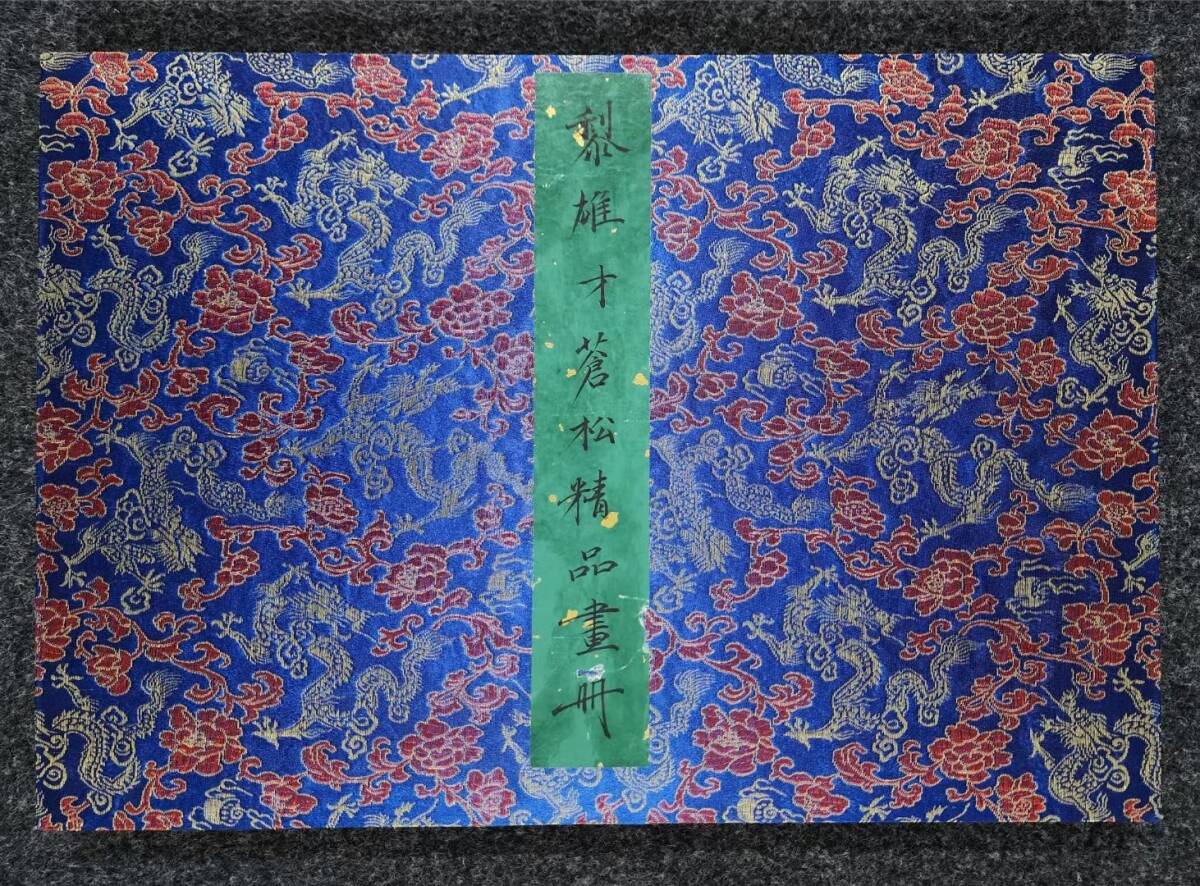 黎雄才蒼松精品畫冊